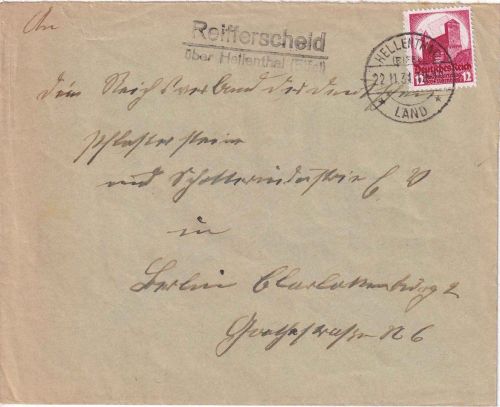 An
Reifferscheid
über Hellenthal (Eifel)
HELLENTHAL
(EIFEL)
22.11.34
LAND
Deutsches Reich
12 12
den Reichsverband der deutschen
Pflasterstein
und Schotterindustrie E V
in
Berlin Charlottenburg 2
Goethestraße N 6